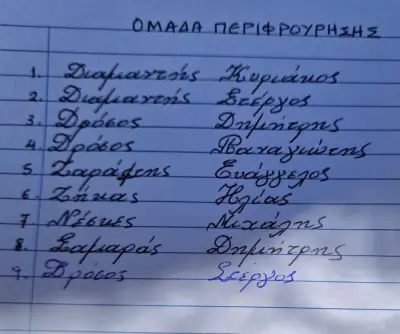 ΟΜΑΔΑ ΠΕΡΙΦΡΟΥΡΗΣΗΣ
1. Διαμαντής Κυριάκος
2. Διαμαντής Στέργος
3. Δρόσος Δημήτρης
4. Δρόσος Παναγιώτης
5 Σαράφης Ευάγγελος
6 Ζήκας Ηλίας
7 Νέσκες Μιχάλης
8. Σαμαράς Δημήτρης
9. Δρόσος Στέργος